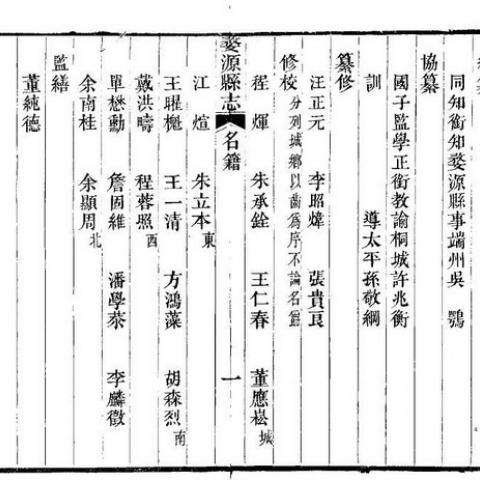 同知銜知婺源縣事端州吳 鶚
協纂
國子監學正銜教諭桐城許兆衡
訓 導太平孫敬綱
纂修
汪正元 李昭煒 張貴良
修校 分列城鄉以齒爲序不論名爵
程煇 朱承銓 王仁春 董應崧 城
婺源縣志 名籍 一
江煊 朱立本 東
王曜樾 王一清 方鴻藻 胡森烈 南
戴洪疇 程蓉照 西
單懋勳 詹固維 潘學棻 李麟徵
余南桂 余顯周 北
監繕
董純德